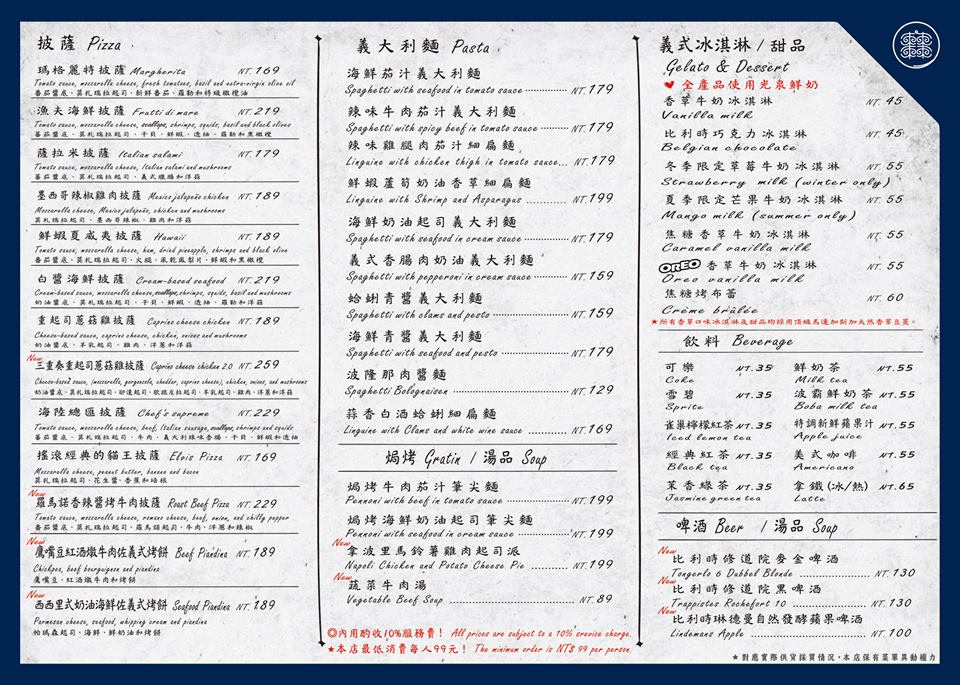 披薩 Pizza
瑪格麗特披薩 Margherita NT. 169
Tomato sauce, mozzarella cheese, fresh tomatoes, basil and extra-virgin olive oil
番茄醬底、莫札瑞拉起司、新鮮番茄、羅勒和特級橄欖油
漁夫海鮮披薩 Frutti di mare NT. 219
Tomato sauce, mozzarella cheese, scallops, shrimps, squids, basil and black olives
番茄醬底、莫札瑞拉起司、干貝、鮮蝦、透抽、羅勒和黑橄欖
薩拉米披薩 Italian salami NT. 179
Tomato sauce, mozzarella cheese, Italian salami and mushrooms
番茄醬底、莫札瑞拉起司、義式臘腸和洋菇
墨西哥辣椒雞肉披薩 Mexico jalapeño chicken NT. 189
Mozzarella cheese, Mexico jalapeño, chicken and mushrooms
莫札瑞拉起司、墨西哥辣椒、雞肉和洋菇
鮮蝦夏威夷披薩 Hawaii NT. 189
Tomato sauce, mozzarella cheese, ham, dried pineapple, shrimps and black olive
番茄醬底、莫札瑞拉起司、火腿、風乾鳳梨片、鮮蝦和黑橄欖
白醬海鮮披薩 Cream-based seafood NT. 219
Cream-based sauce, mozzarella cheese, scallops, shrimps, squids, basil and mushrooms
奶油醬底、莫札瑞拉起司、干貝、鮮蝦、透抽、羅勒和洋菇
重起司蔥菇雞披薩 Caprino cheese chicken NT. 189
Cheese-based sauce, caprino cheese, chicken, onions and mushrooms
奶油醬底、羊乳起司、雞肉、洋蔥和洋菇
New
三重奏重起司蔥菇雞披薩 Caprino cheese chicken 2.0 NT. 259
Cheese-based sauce, (mozzarella, gorgonzola, cheddar, caprino cheese), chicken, onions, and mushrooms
海陸總匯披薩 Chef's supreme NT. 229
Tomato sauce, mozzarella cheese, beef, Italian sausage, scallops, shrimps and squids
番茄醬底、莫札瑞拉起司、牛肉、義大利辣味香腸、干貝、鮮蝦和透抽
搖滾經典的貓王披薩 Elvis Pizza NT. 169
Mozzarella cheese, peanut butter, banana and bacon
莫札瑞拉起司、花生醬、香蕉和培根
New
羅馬諾香辣醬烤牛肉披薩 Roast Beef Pizza NT. 229
Tomato sauce, mozzarella cheese, romano cheese, beef, onion, and chilly pepper
番茄醬底、莫札瑞拉起司、羅馬諾起司、牛肉、洋蔥和辣椒
New
鷹嘴豆紅酒燉牛肉佐義式烤餅 Beef Piandina NT. 189
Chickpea, beef bourguignon and piandina
鷹嘴豆、紅酒燉牛肉和烤餅
New
西西里式奶油海鮮佐義式烤餅 Seafood Piandina NT. 189
Parmesan cheese, seafood, whipping cream and piandina
帕瑪森起司、海鮮、鮮奶油和烤餅
義大利麵 Pasta
海鮮茄汁義大利麵
Spaghetti with seafood in tomato sauce NT. 179
辣味牛肉茄汁義大利麵
Spaghetti with spicy beef in tomato sauce NT. 179
辣味雞腿肉茄汁細扁麵
Linguine with chicken thigh in tomato sauce... NT. 179
鮮蝦蘆筍奶油香草細扁麵
Linguine with Shrimp and Asparagus NT. 199
海鮮奶油起司義大利麵
Spaghetti with seafood in cream sauce NT. 179
義式香腸肉奶油義大利麵
Spaghetti with pepperoni in cream sauce NT. 159
蛤蜊青醬義大利麵
Spaghetti with clams and pesto NT. 159
海鮮青醬義大利麵
Spaghetti with seafood and pesto NT. 179
波隆那肉醬麵
Spaghetti Bolognaisen NT. 129
蒜香白酒蛤蜊細扁麵
Linguine with Clams and white wine sauce NT. 169
焗烤 Gratin / 湯品 Soup
焗烤牛肉茄汁筆尖麵
Pennoni with beef in tomato sauce NT. 199
焗烤海鮮奶油起司筆尖麵
Pennoni with seafood in cream sauce NT. 199
New
拿波里馬鈴薯雞肉起司派
Napoli Chicken and Potato Cheese Pie NT. 199
New
蔬菜牛肉湯
Vegetable Beef Soup NT. 89
◎內用酌收10%服務費! All prices are subject to a 10% srevice charge.
★本店最低消費每人99元! The minimum order is NT$ 99 per person.
義式冰淇淋 / 甜品
Gelato & Dessert
♥ 全產品使用光泉鮮奶
香草牛奶冰淇淋 NT. 45
Vanilla milk
比利時巧克力冰淇淋 NT. 45
Belgian chocolate
冬季限定草莓牛奶冰淇淋 NT. 55
Strawberry milk (winter only)
夏季限定芒果牛奶冰淇淋 NT. 55
Mango milk (summer only)
焦糖香草牛奶冰淇淋 NT. 55
Caramel vanilla milk
OREO 香草牛奶冰淇淋 NT. 55
Oreo vanilla milk
焦糖烤布蕾 NT. 60
Crème brûlée
★所有香草口味冰淇淋及甜品均採用頂級馬達加斯加天然香草豆莢。
飲料 Beverage
可樂 NT. 35 鮮奶茶 NT. 55
Coke Milk tea
雪碧 NT. 35 波霸鮮奶茶 NT. 55
Sprite Boba milk tea
雀巢檸檬紅茶 NT. 35 特調新鮮蘋果汁 NT. 55
Iced lemon tea Apple juice
經典紅茶 NT. 35 美式咖啡 NT. 55
Black tea Americano
茉香綠茶 NT. 35 拿鐵(冰/熱) NT. 65
Jasmine green tea Latte
啤酒 Beer / 湯品 Soup
New
比利時修道院麥金啤酒
Tongerlo 6 Dubbel Blonde NT. 130
New
比利時修道院黑啤酒
Trappistes Rochefort 10 NT. 130
New
比利時琳德曼自然發酵蘋果啤酒
Lindemans Apple NT. 100
★對應實際供貨採買情況，本店保有菜單異動權力